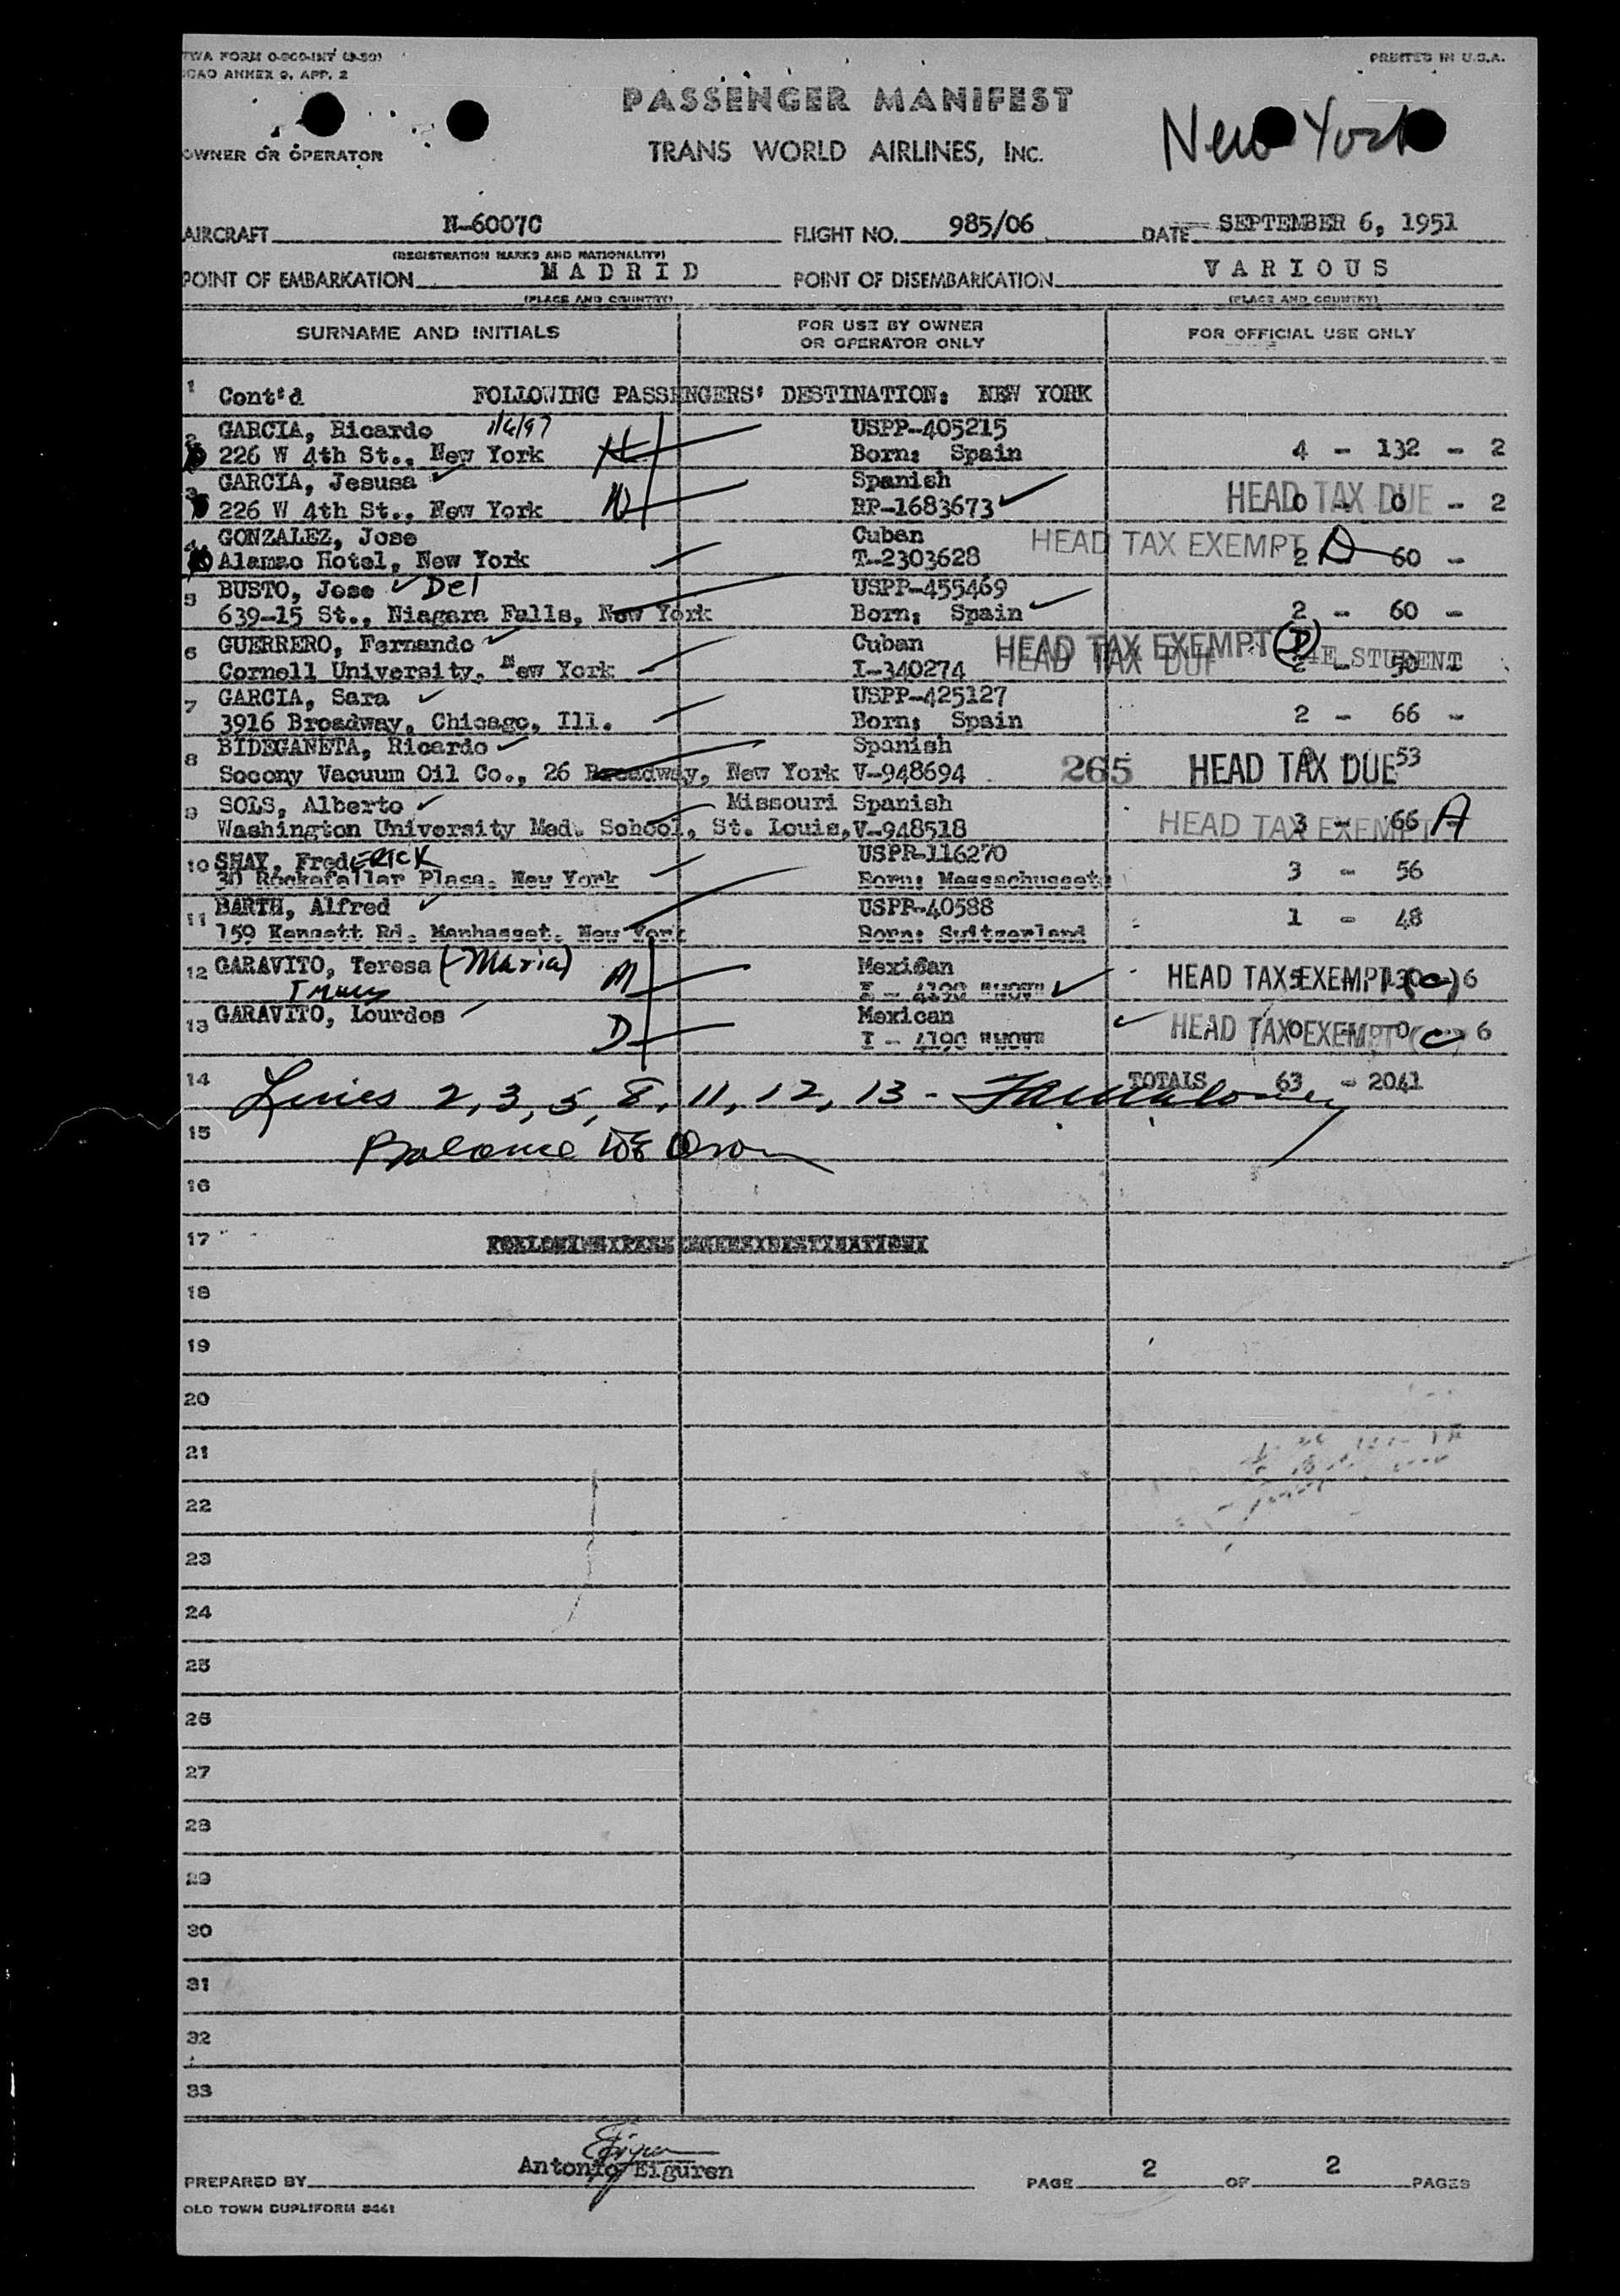 TWA FORM O-900-INT (3-50)
ICAO ANNEX 9, APP. 2
PRINTED IN U.S.A.
PASSENGER MANIFEST
OWNER OR OPERATOR
TRANS WORLD AIRLINES, INC.
New York
AIRCRAFT N-6007C FLIGHT NO. 985/06 DATE SEPTEMBER 6, 1951
(REGISTRATION MARKS AND NATIONALITY)
POINT OF EMBARKATION MADRID POINT OF DISEMBARKATION VARIOUS
(PLACE AND COUNTRY) (PLACE AND COUNTRY)
SURNAME AND INITIALS FOR USE BY OWNER OR OPERATOR ONLY FOR OFFICIAL USE ONLY
1 Cont'd FOLLOWING PASSENGERS' DESTINATION: NEW YORK
2 GARCIA, Ricardo 1/6/97 USPP-405215
226 W 4th St., New York H Born: Spain 4 - 132 - 2
3 GARCIA, Jesusa Spanish HEAD TAX DUE
226 W 4th St., New York W RP-1683673 0 - 0 - 2
4 GONZALEZ, Jose Cuban HEAD TAX EXEMPT D
Alamac Hotel, New York T-2303628 2 - 60 -
5 BUSTO, Jose Del USPP-455469
639-15 St., Niagara Falls, New York Born: Spain 2 - 60 -
6 GUERRERO, Fernando Cuban HEAD TAX EXEMPT (D)
Cornell University, New York I-340274 HEAD TAX DUE 4E STUDENT 2 - 50 -
7 GARCIA, Sara USPP-425127
3916 Broadway, Chicago, Ill. Born: Spain 2 - 66 -
8 BIDEGANETA, Ricardo Spanish
Socony Vacuum Oil Co., 26 Broadway, New York V-948694 265 HEAD TAX DUE 53
9 SOLS, Alberto Missouri Spanish
Washington University Med. School, St. Louis, V-948518 HEAD TAX EXEMPT A 3 - 66 -
10 SHAY, FredERICK USPP-116270
30 Rockefeller Plaza, New York Born: Massachussets 3 - 56
11 BARTH, Alfred USPP-40588
159 Kensett Rd. Manhasset, New York Born: Switzerland 1 - 48
12 GARAVITO, Teresa (Maria) M Mexican HEAD TAX EXEMPT (C) 6
I - 4190 "MOV"
13 GARAVITO, Lourdes D Mexican HEAD TAX EXEMPT (C) 6
I - 4190 "MOV"
14 TOTALS 63 - 2041
Lines 2, 3, 5, 8, 11, 12, 13 -
15 Balance
16
17
18
19
20
21
22
23
24
25
26
27
28
29
30
31
32
33
PREPARED BY Antonio Eiguren PAGE 2 OF 2 PAGES
OLD TOWN DUPLIFORM 8461